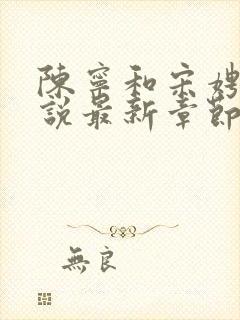 陳寧和宋娉
說最新章節
無良